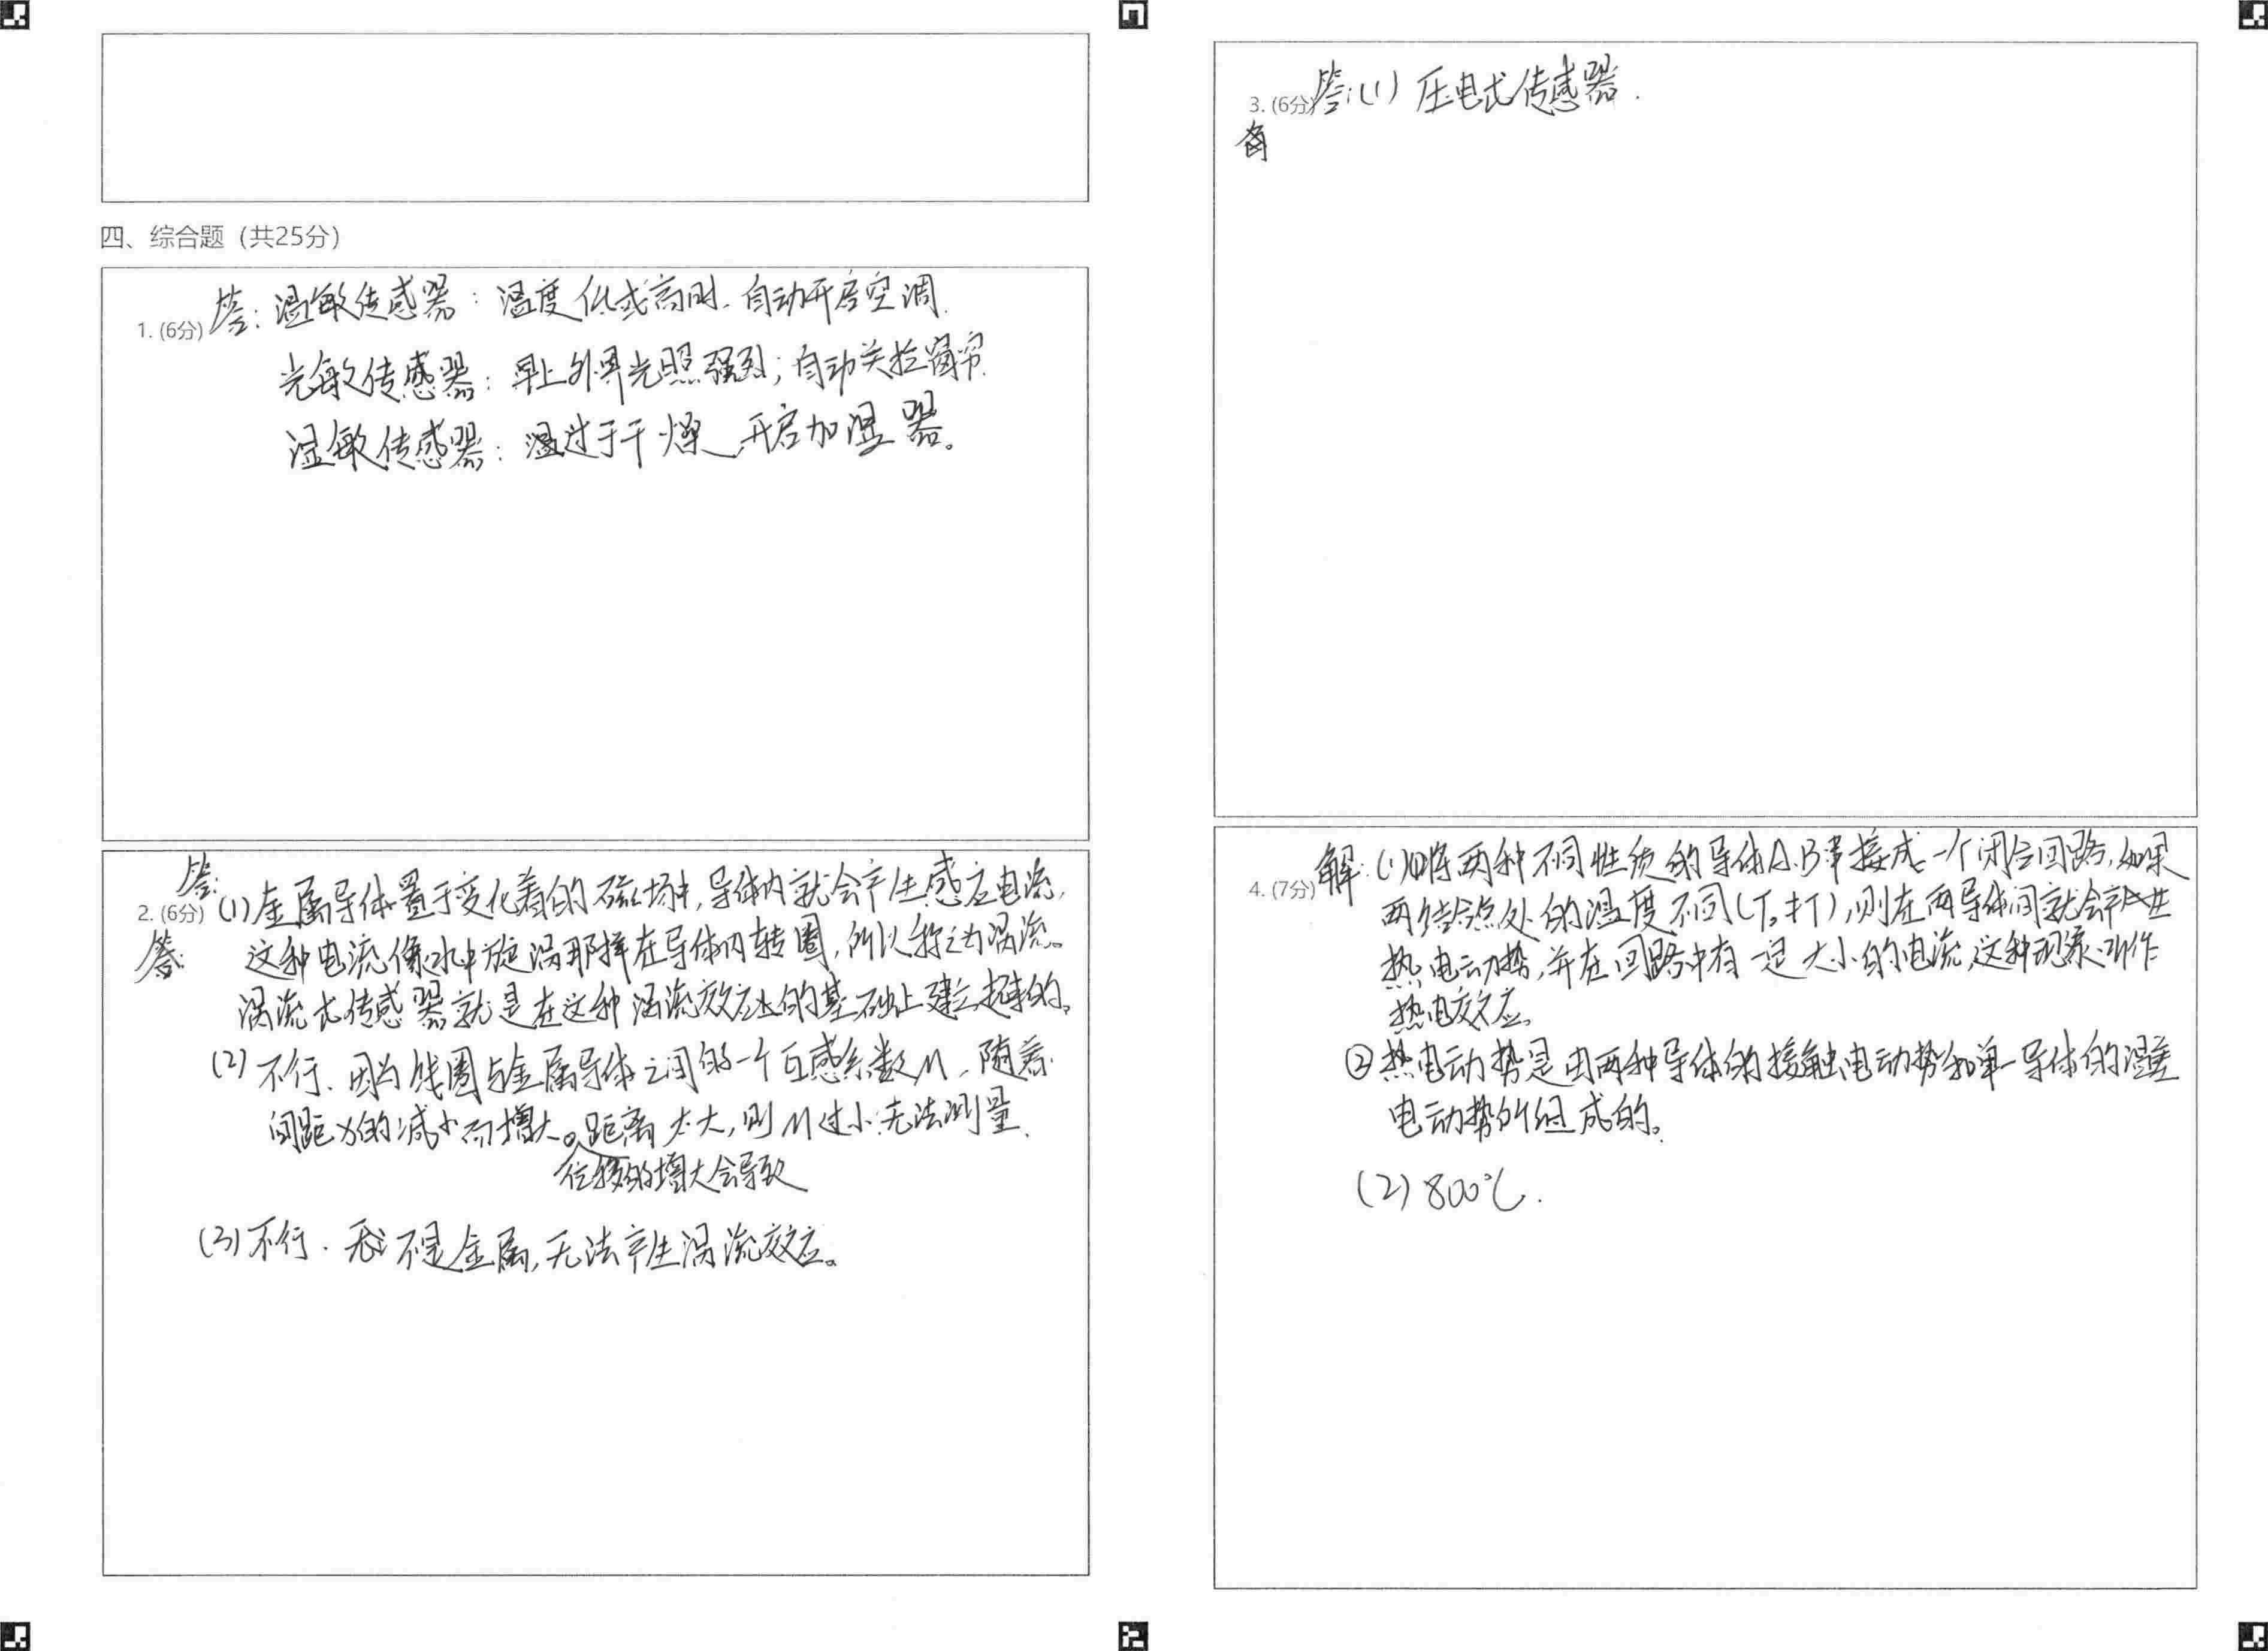 四、综合题（共25分）
1. (6分) 答：温敏传感器：温度低或高时、自动开启空调.
光敏传感器：早上外界光照强烈；自动关拉窗帘.
湿敏传感器：湿过于干燥，开启加湿器。
答：
2. (6分) (1) 金属导体置于变化着的磁场中，导体内就会产生感应电流，
答： 这种电流像水中旋涡那样在导体内转圈，所以称之为涡流。
涡流式传感器就是在这种涡流效应的基础上建立起来的。
(2) 不行. 因为线圈与金属导体之间的一个互感系数M，随着
间距x的减小而增大。距离太大，则M过小无法测量.
位移的增大会导致
(3) 不行. 不是金属，无法产生涡流效应。
3. (6分) 答：(1) 压电式传感器.
4. (7分) 解：(1)①将两种不同性质的导体A.B串接成一个闭合回路，如果
两结合点处的温度不同(T₀≠T)，则在两导体间就会产生
热电动势，并在回路中有一定大小的电流，这种现象叫作
热电效应。
②热电动势是由两种导体的接触电动势和单一导体的温差
电动势所组成的。
(2) 800℃.